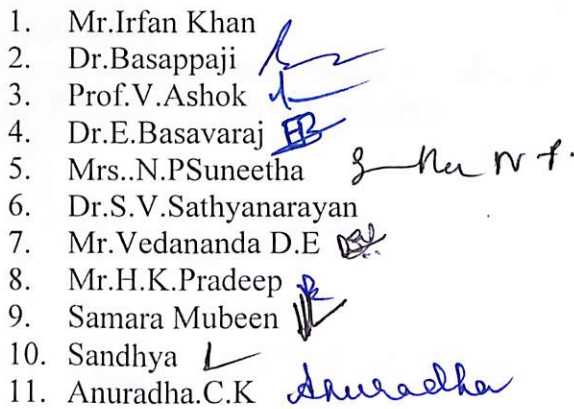 1. Mr.Irfan Khan
2. Dr.Basappaji
3. Prof.V.Ashok
4. Dr.E.Basavaraj EB
5. Mrs..N.PSuneetha N P.
6. Dr.S.V.Sathyanarayan
7. Mr.Vedananda D.E
8. Mr.H.K.Pradeep
9. Samara Mubeen
10. Sandhya
11. Anuradha.C.K Anuradha